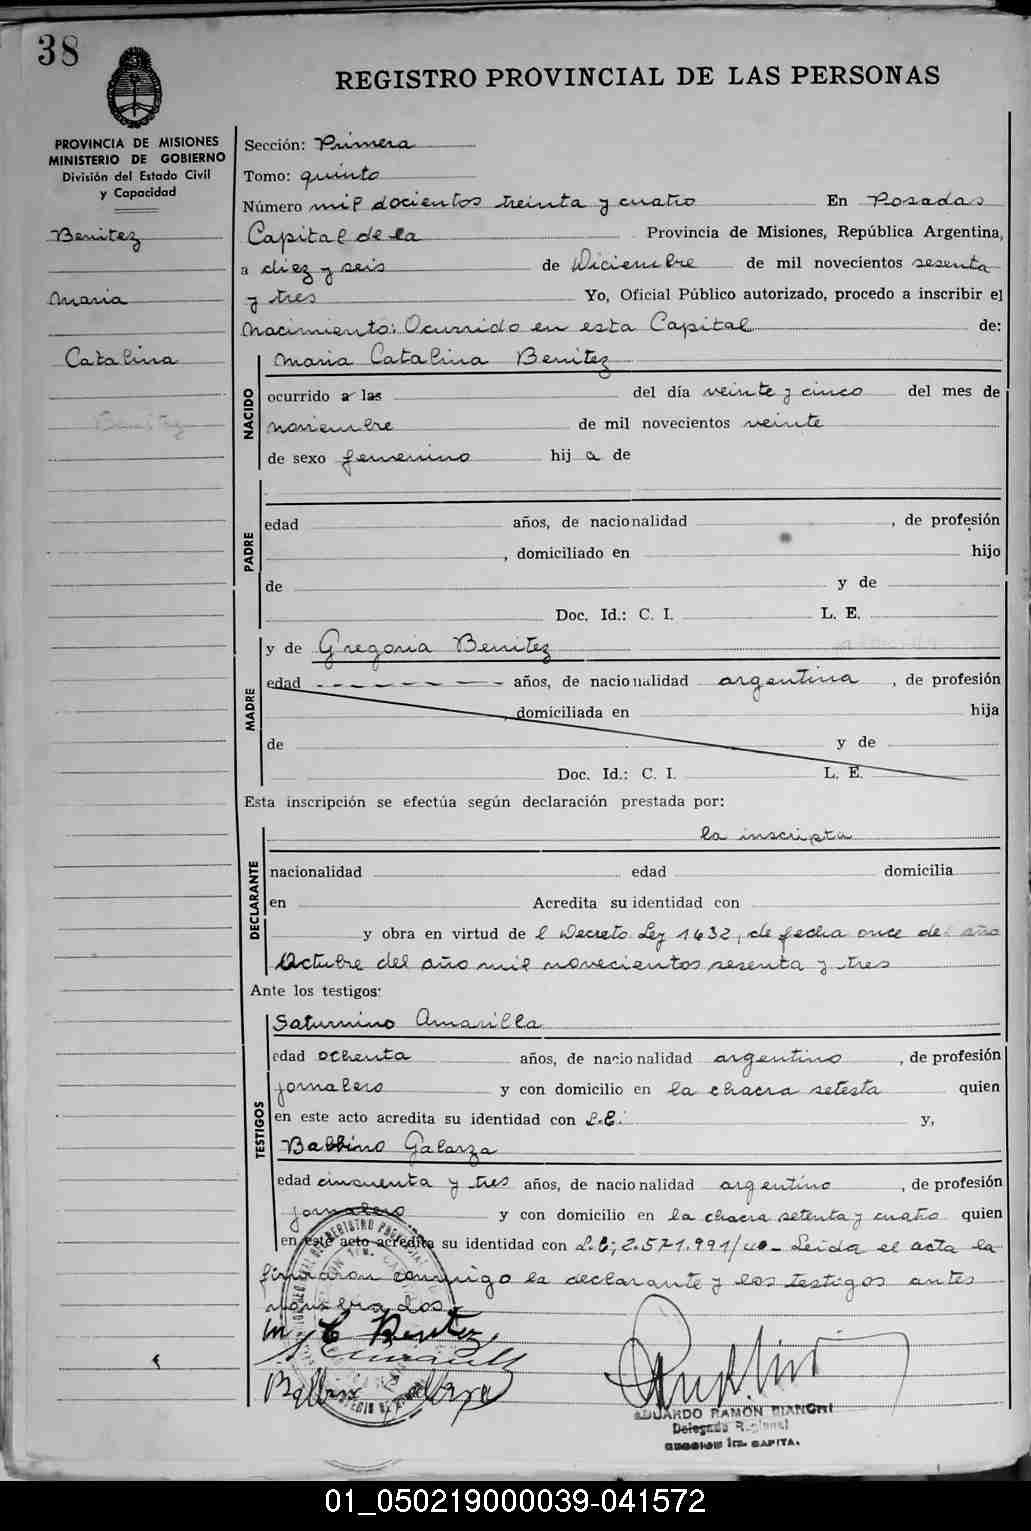 38
REGISTRO PROVINCIAL DE LAS PERSONAS
PROVINCIA DE MISIONES
MINISTERIO DE GOBIERNO
División del Estado Civil
y Capacidad
Benitez
Maria
Catalina
Benitez
Sección: Primera
Tomo: quinto
Número mil docientos treinta y cuatro En Posadas
Capital de la Provincia de Misiones, República Argentina,
a diez y seis de Diciembre de mil novecientos sesenta
y tres Yo, Oficial Público autorizado, procedo a inscribir el
Nacimiento: Ocurrido en esta Capital de:
NACIDO
Maria Catalina Benitez
ocurrido a las del día veinte y cinco del mes de
noviembre de mil novecientos veinte
de sexo femenino hij a de
PADRE
edad años, de nacionalidad , de profesión
, domiciliado en hijo
de y de
Doc. Id.: C. I. L. E.
MADRE
y de Gregoria Benitez
edad - - - - - - - años, de nacionalidad argentina , de profesión
, domiciliada en hija
de y de
Doc. Id.: C. I. L. E.
Esta inscripción se efectúa según declaración prestada por:
DECLARANTE
la inscripta
nacionalidad edad domicilia
en Acredita su identidad con
y obra en virtud de l Decreto Ley 1432, de fecha once de año
Octubre del año mil novecientos sesenta y tres
Ante los testigos:
TESTIGOS
Saturnino Amarilla
edad ochenta años, de nacionalidad argentino , de profesión
jornalero y con domicilio en la chacra setenta quien
en este acto acredita su identidad con L.E. y,
Balbino Galarza
edad cincuenta y tres años, de nacionalidad argentino , de profesión
jornalero y con domicilio en la chacra setenta y cuatro quien
en este acto acredita su identidad con L.E; 2.571.991/ Leida el acta la
firmaron conmigo la declarante y los testigos antes
nombrados.
M C Benitez
EDUARDO RAMÓN BIANCHI
Delegado Regional
SECCION 1ra. CAPITAL
01_050219000039-041572